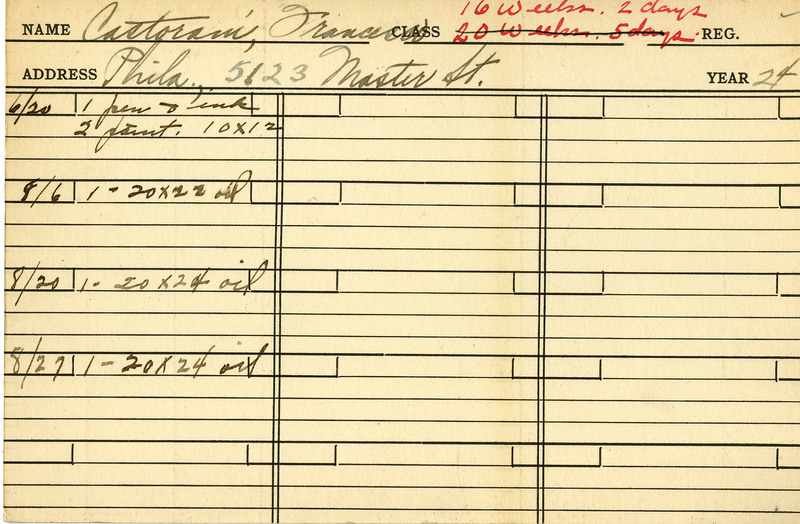 16 Weeks. 2 days
NAME Cattorani, Francesco CLASS 20 Weeks. 5 days. REG.
ADDRESS Phila. 5123 Master St. YEAR 24
6/20 1 pen & ink
2 paint. 10x12
8/6 1 - 20x22 oil
8/20 1 - 20x24 oil
8/27 1 - 20x24 oil